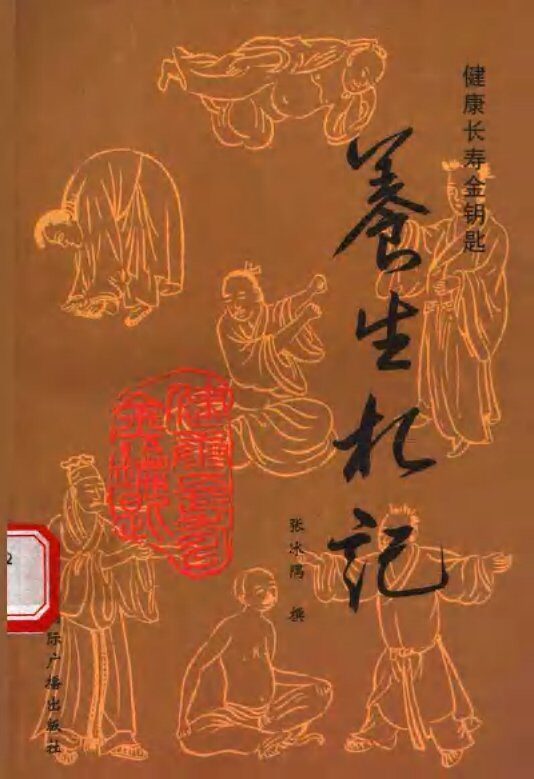 健康长寿金钥匙
養生札记
张冰隅 撰
际广播出版社
2